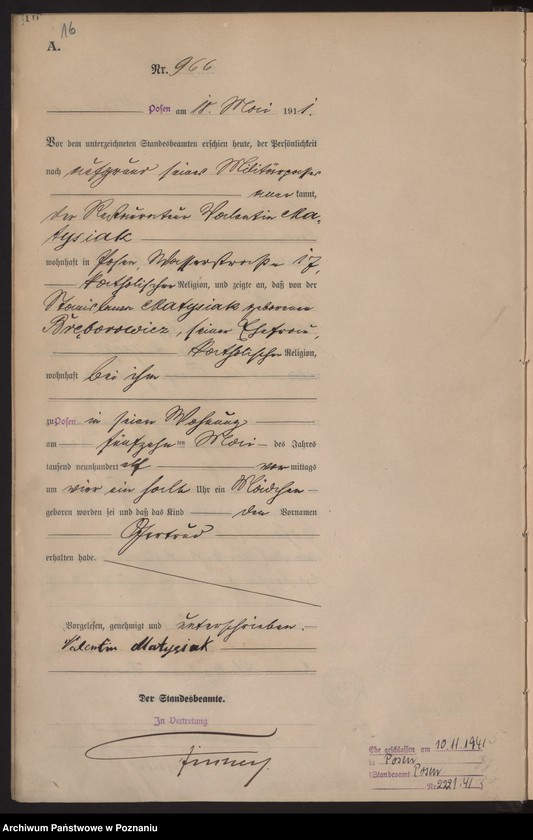 16
A.
Nr. 966
Posen am 18. Mai 1911.
Vor dem unterzeichneten Standesbeamten erschien heute, der Persönlichkeit
nach aufgrund seines Militärpasses
kannt,
der Restaurateur Valentin Ma-
tysiak
wohnhaft in Posen, Wasserstraße 17,
katholischer Religion, und zeigte an, daß von der
Stanislawa Matysiak geborenen
Bręborowicz, seiner Ehefrau,
katholischer Religion,
wohnhaft bei ihm
zu Posen in seiner Wohnung
am fünfzehnten Mai des Jahres
tausend neunhundert elf vormittags
um vier ein halb Uhr ein Mädchen
geboren worden sei und daß das Kind den Vornamen
Gertrud
erhalten habe.
Vorgelesen, genehmigt und unterschrieben.
Valentin Matysiak
Der Standesbeamte.
In Vertretung
Ehe geschlossen am 10.11.1941
in Posen
(Standesamt Posen
Nr. 2221.41)
Archiwum Państwowe w Poznaniu